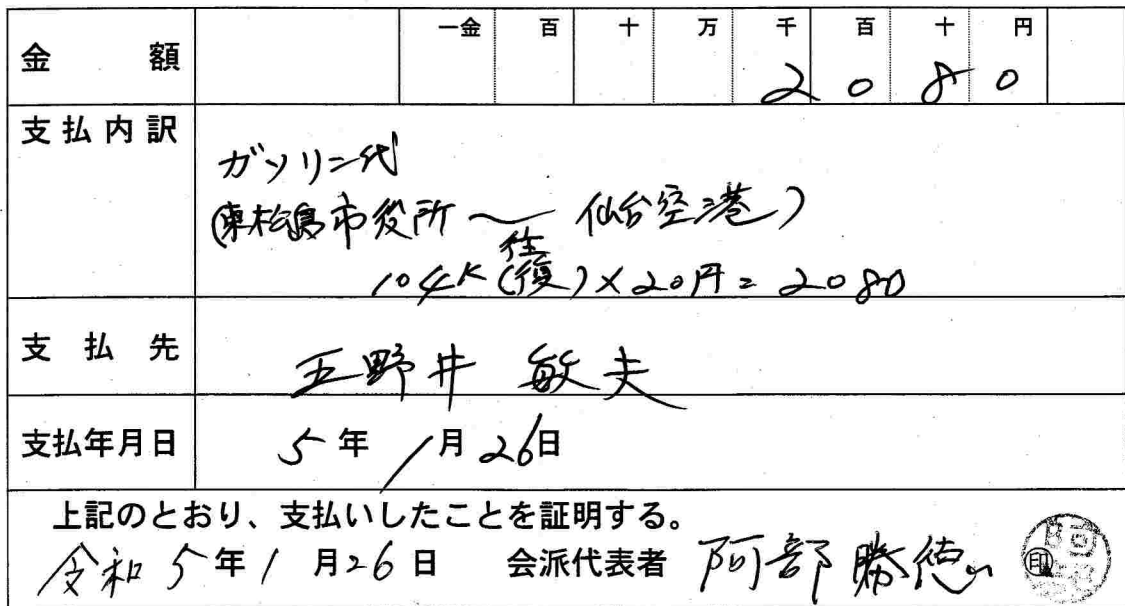 金額 一金 百 十 万 千 百 十 円
2 0 8 0
支払内訳
ガソリン代
(東松島市役所 〜 仙台空港)
104K(往復)×20円=2080
支払先 五野井 敏夫
支払年月日 5年 1月26日
上記のとおり、支払いしたことを証明する。
令和5年1月26日 会派代表者 阿部勝德 印